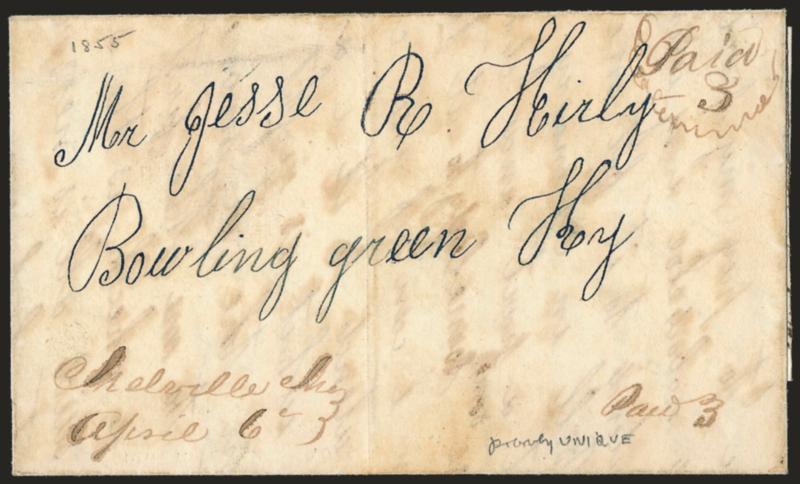 1855
Paid
3
Mr Jesse R. Kirly
Bowling green Ky
Melville
April 6
Paid 3
probably UNIQUE